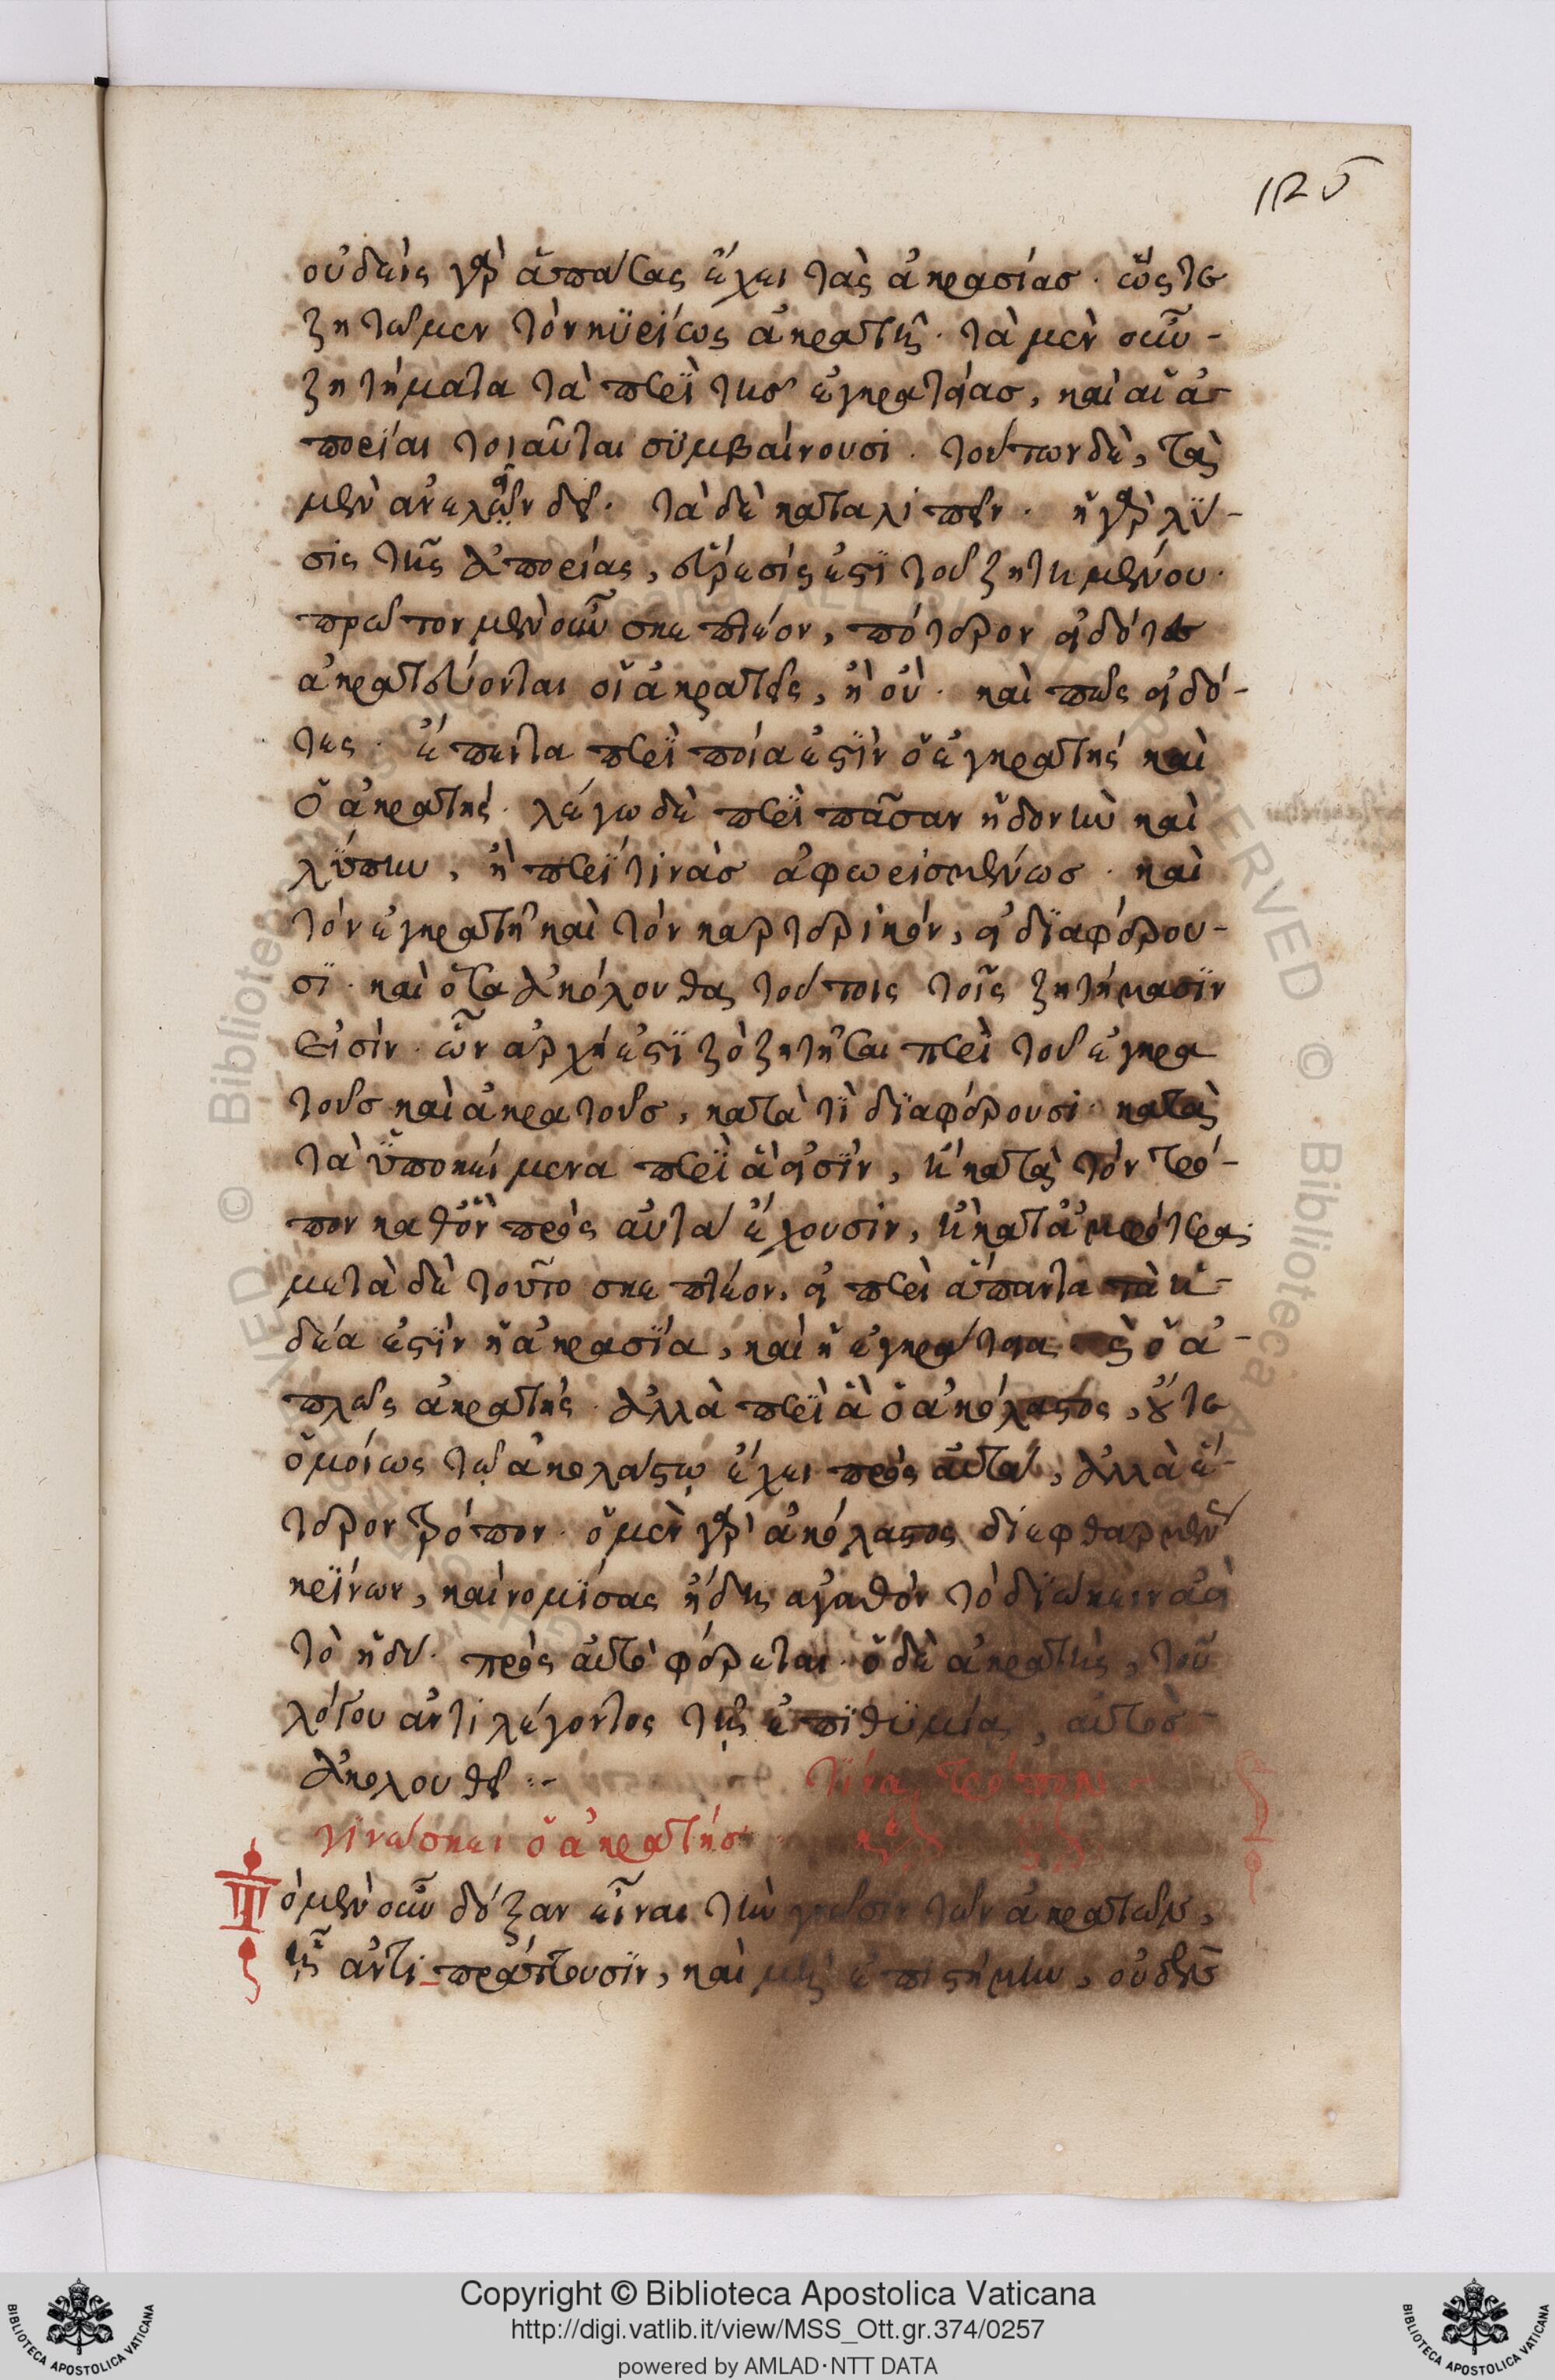 125
οὐδεὶς γὰρ ἁπάσας ἔχει τὰς ἀκρασίας. ὥςτε
ζητῶμεν τὸν κυρίως ἀκρατῆ. τὰ μὲν οὖν
ζητήματα τὰ περὶ τῆς ἐγκρατείας, καὶ αἱ ἀ-
πορίαι τοιαῦται συμβαίνουσι. τούτων δὲ, τὰς
μὲν ἀνελεῖν δεῖ. τὰ δὲ καταλιπεῖν. ἡ γὰρ λύ-
σις τῆς ἀπορίας, εὕρεσίς ἐστι τοῦ ζητημένου.
πρῶτον μὲν οὖν σκεπτέον, πότερον εἰδότες
ἀκρατεύονται οἱ ἀκρατεῖς, ἢ οὐ. καὶ πῶς εἰδό-
τες. ἔπειτα περὶ ποῖα ἐστὶν ὁ ἐγκρατὴς καὶ
ὁ ἀκρατής. λέγω δὲ περὶ πᾶσαν ἡδονὴν καὶ
λύπην, ἢ περὶ τινὰς ἀφωρισμένως. καὶ
τὸν ἐγκρατῆ καὶ τὸν καρτερικόν, εἰ διαφέρου-
σι. καὶ ὅσα ἀκόλουθα τούτοις τοῖς ζητήμασιν
εἰσίν. ὧν ἀρχή ἐστι τὸ ζητῆσαι περὶ τοῦ ἐγκρα
τοῦς καὶ ἀκρατοῦς, κατὰ τί διαφέρουσι. κατὰ
τὰ ὑποκείμενα περὶ ἃ εἰσὶν, ἢ κατὰ τὸν τρό-
πον καθ ὃν πρὸς αὐτὰ ἔχουσιν, ἢ κατ ἀμφότερα.
μετὰ δὲ τοῦτο σκεπτέον, εἰ περὶ ἅπαντα τὰ ἡ-
δέα ἐστὶν ἡ ἀκρασία, καὶ ἡ ἐγκράτεια ὁ ἁ-
πλῶς ἀκρατής. ἀλλὰ περὶ ἃ ὁ ἀκόλαστος, οὔτε
ὁμοίως τῷ ἀκολάστῳ ἔχει πρὸς αὐτά, ἀλλὰ ἕ-
τερον τρόπον. ὁ μὲν γὰρ ἀκόλαστος διεφθαρμέν
κρίνων, καὶ νομίσας ἤδη ἀγαθὸν τὸ διώκειν ἀεὶ
τὸ ἡδύ. πρὸς αὐτὸ φέρεται. ὁ δὲ ἀκρατὴς, τοῦ
λόγου ἀντιλέγοντος τῆς ἐπιθυμίας, αὐτὸς
ἀκολουθεῖ :- τίνα τρόπον
γινώσκει ὁ ἀκρατής
Τὸ μὲν οὖν δόξαν εἶναι τὴν γνῶσιν τῶν ἀκρατῶν,
ἀντιπράττουσιν, καὶ μὴ ἐπιστήμην, οὐδὲν
Copyright © Biblioteca Apostolica Vaticana
http://digi.vatlib.it/view/MSS_Ott.gr.374/0257
powered by AMLAD·NTT DATA
BIBLIOTECA APOSTOLICA VATICANA
BIBLIOTECA APOSTOLICA VATICANA